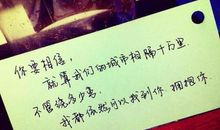 你要相信,
就算我们的城市相隔十万里
不管绕多少弯
我都依然可以找到你 拥抱你